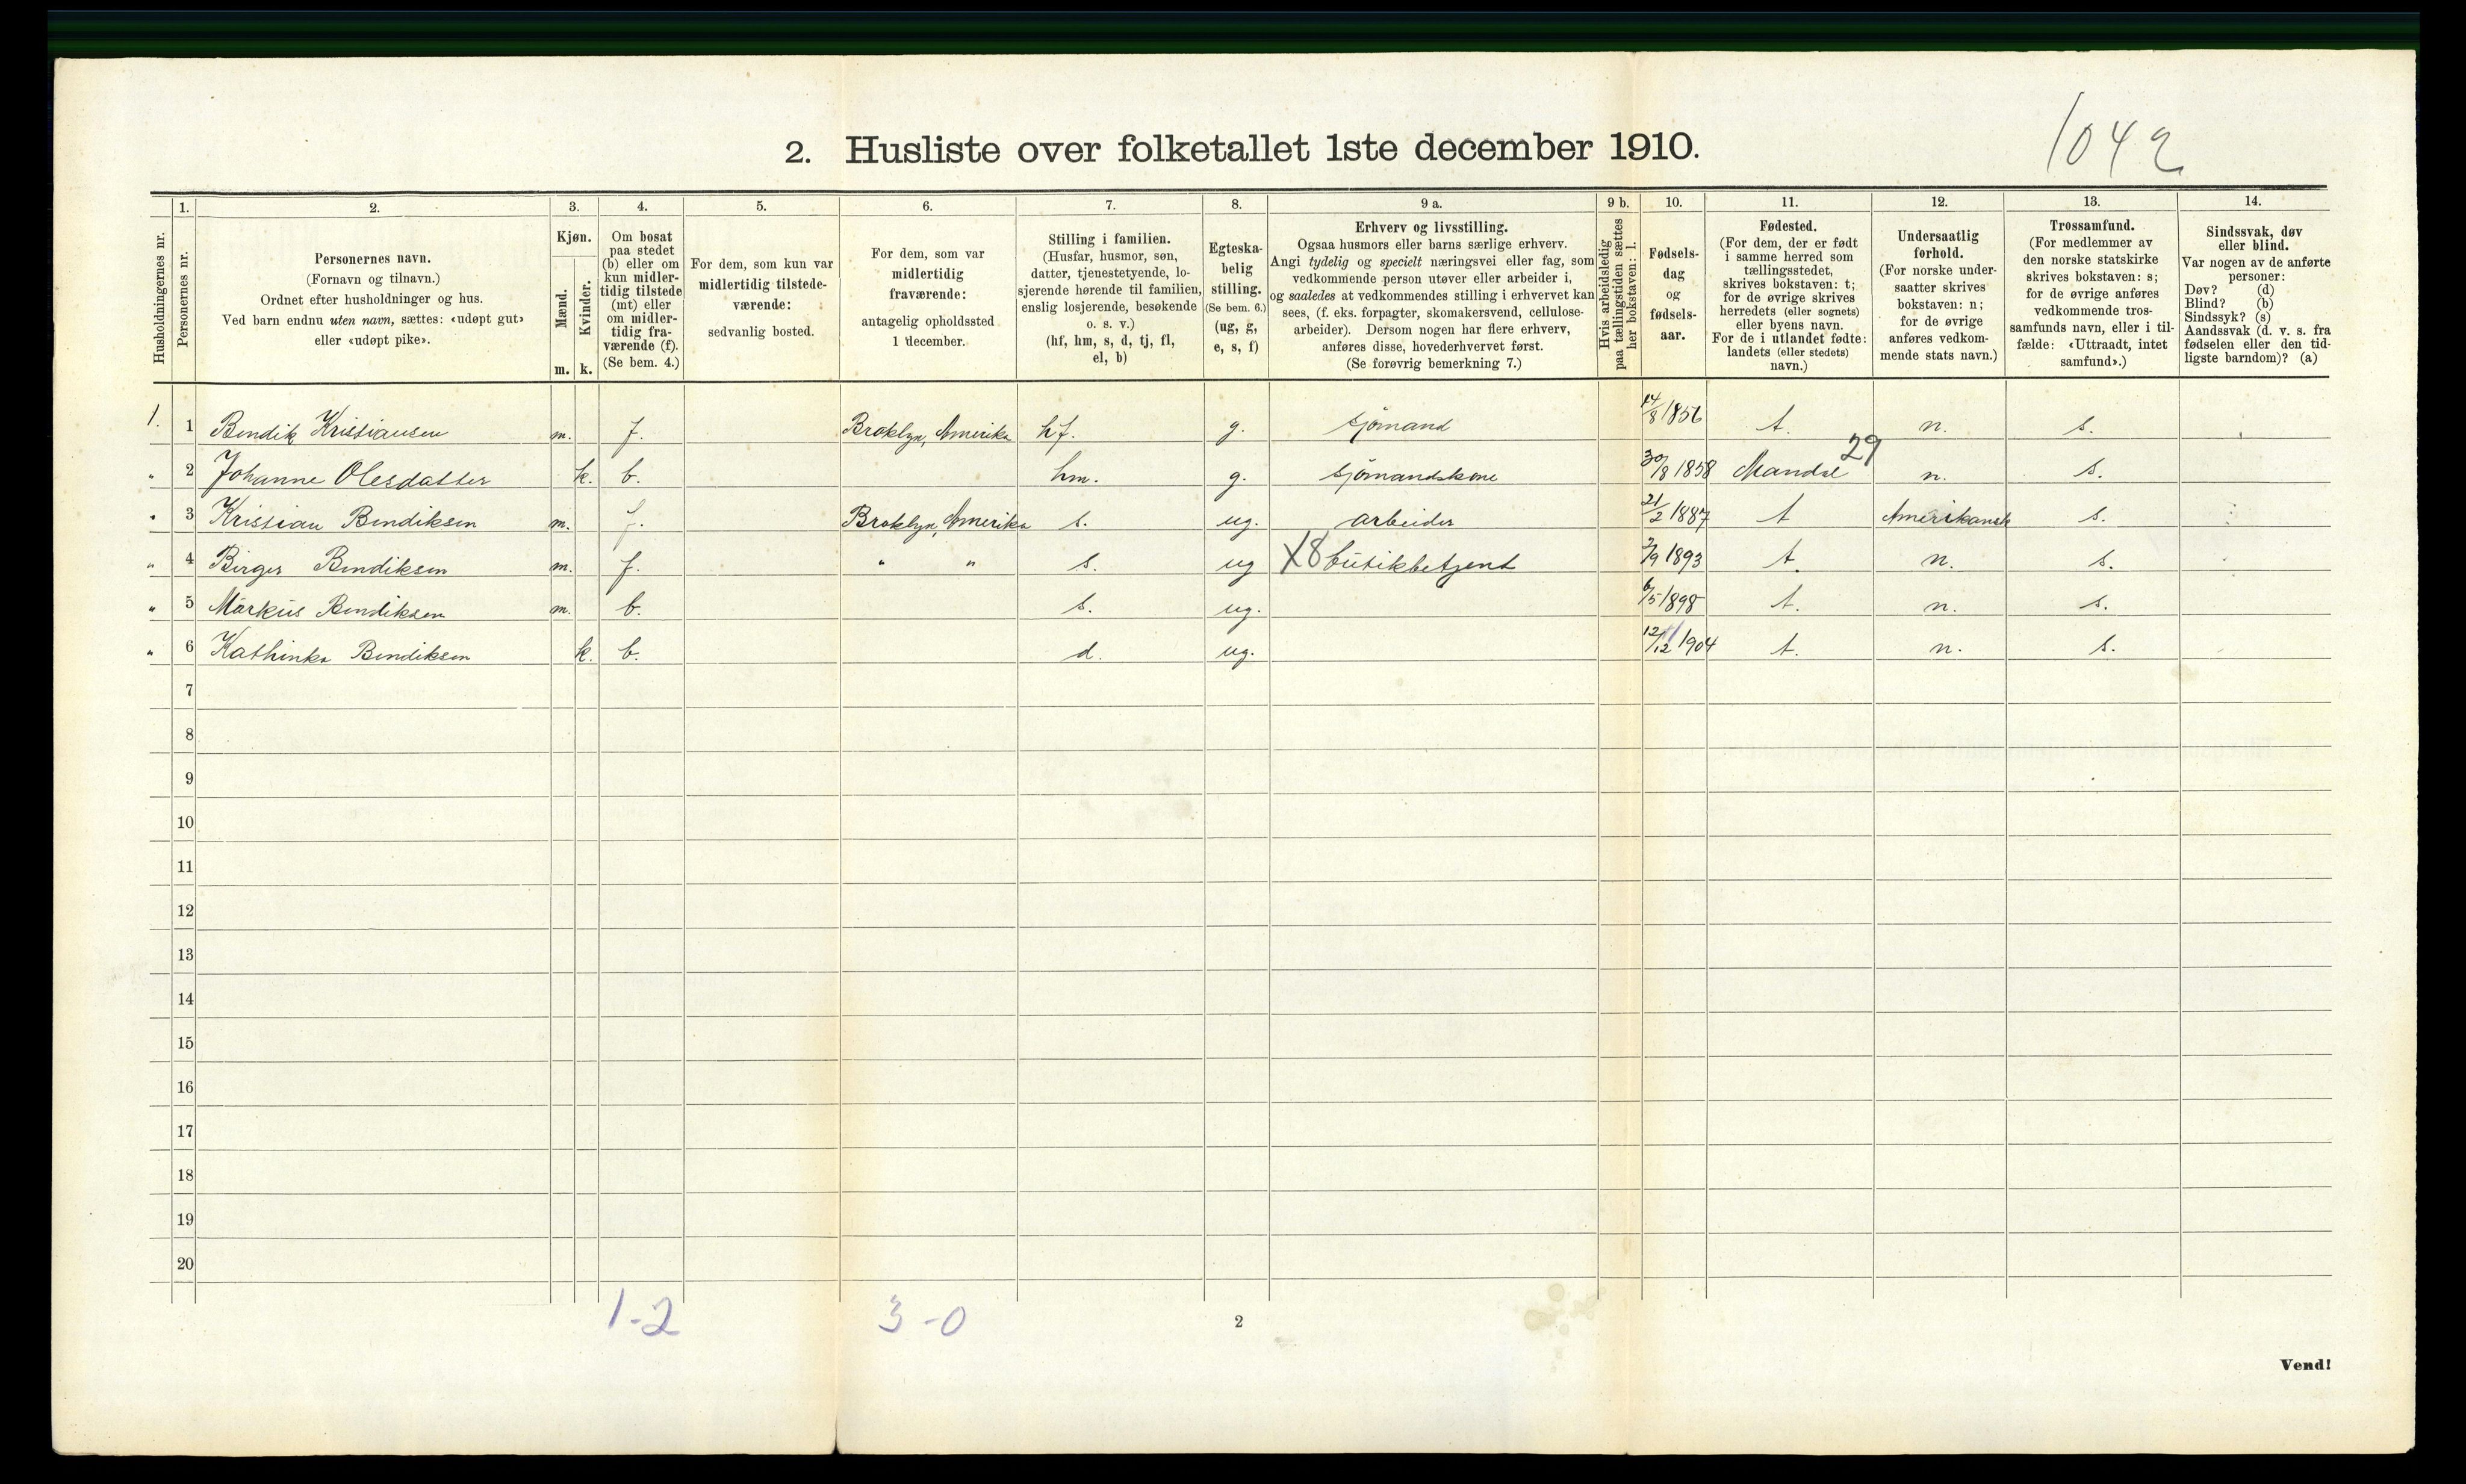 1042
2. Husliste over folketallet 1ste december 1910.
Husholdningernes nr.
1.
Personernes nr.
2.
Personernes navn.
(Fornavn og tilnavn.)
Ordnet efter husholdninger og hus.
Ved barn endnu uten navn, sættes: «udøpt gut»
eller «udøpt pike».
3.
Kjøn.
Mænd.
Kvinder.
m. k.
4.
Om bosat
paa stedet
(b) eller om
kun midler-
tidig tilstede
(mt) eller
om midler-
tidig fra-
værende (f).
(Se bem. 4.)
5.
For dem, som kun var
midlertidig tilstede-
værende:
sedvanlig bosted.
6.
For dem, som var
midlertidig
fraværende:
antagelig opholdssted
1 december.
7.
Stilling i familien.
(Husfar, husmor, søn,
datter, tjenestetyende, lo-
sjerende hørende til familien,
enslig losjerende, besøkende
o. s. v.)
(hf, hm, s, d, tj, fl,
el, b)
8.
Egteska-
belig
stilling.
(Se bem. 6.)
(ug, g,
e, s, f)
9 a.
Erhverv og livsstilling.
Ogsaa husmors eller barns særlige erhverv.
Angi tydelig og specielt næringsvei eller fag, som
vedkommende person utøver eller arbeider i,
og saaledes at vedkommendes stilling i erhvervet kan
sees, (f. eks. forpagter, skomakersvend, cellulose-
arbeider). Dersom nogen har flere erhverv,
anføres disse, hovederhvervet først.
(Se forøvrig bemerkning 7.)
9 b.
Hvis arbeidsledig
paa tællingstiden sættes
her bokstaven: l.
10.
Fødsels-
dag
og
fødsels-
aar.
11.
Fødested.
(For dem, der er født
i samme herred som
tællingsstedet,
skrives bokstaven: t;
for de øvrige skrives
herredets (eller sognets)
eller byens navn.
For de i utlandet fødte:
landets (eller stedets)
navn.)
12.
Undersaatlig
forhold.
(For norske under-
saatter skrives
bokstaven: n;
for de øvrige
anføres vedkom-
mende stats navn.)
13.
Trossamfund.
(For medlemmer av
den norske statskirke
skrives bokstaven: s;
for de øvrige anføres
vedkommende tros-
samfunds navn, eller i til-
fælde: «Uttraadt, intet
samfund».)
14.
Sindssvak, døv
eller blind.
Var nogen av de anførte
personer:
Døv? (d)
Blind? (b)
Sindssyk? (s)
Aandssvak (d. v. s. fra
fødselen eller den tid-
ligste barndom)? (a)
1. 1 Bendik Kristiansen m. f. Broklyn, Amerika hf. g. sjömand 14/8 1856 t. n. s.
29
" 2 Johanne Olesdatter k. b. hm. g. sjömandskone 30/8 1858 Mandal n. s.
" 3 Kristian Bendiksen m. f. Broklyn, Amerika s. ug. arbeider 21/2 1887 t Amerikansk s.
" 4 Birger Bendiksen m. f. " " s. ug X8 butikbetjent 2/9 1893 t. n. s.
" 5 Markus Bendiksen m. b. s. ug. 6/5 1898 t. n. s.
" 6 Kathinka Bendiksen k. b. d. ug. 12/12 1904 t. n. s.
7
8
9
10
11
12
13
14
15
16
17
18
19
20
1-2 3-0
2
Vend!